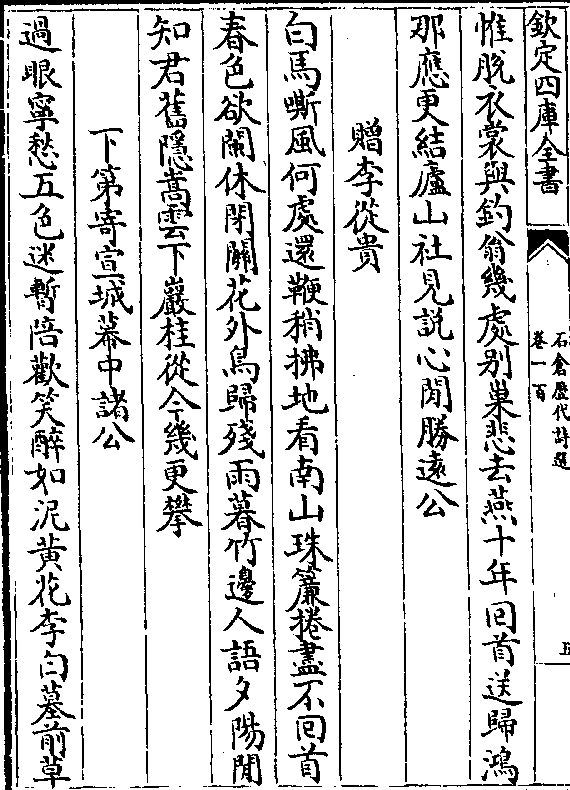 欽定四庫全書
石倉歷代詩選
卷一百
五
惟脫衣裳與釣翁幾處别巢悲去燕十年回首送歸鴻
那應更結廬山社見說心閒勝遠公
贈李從貴
白馬嘶風何處還鞭稍拂地看南山珠簾捲盡不回首
春色欲闌休閉關花外鳥歸殘雨暮竹邊人語夕陽閒
知君舊隱嵩雲下巖桂從今幾更攀
下第寄宣城幕中諸公
過眼寧愁五色迷暫陪歡笑醉如泥黄花李白墓前草